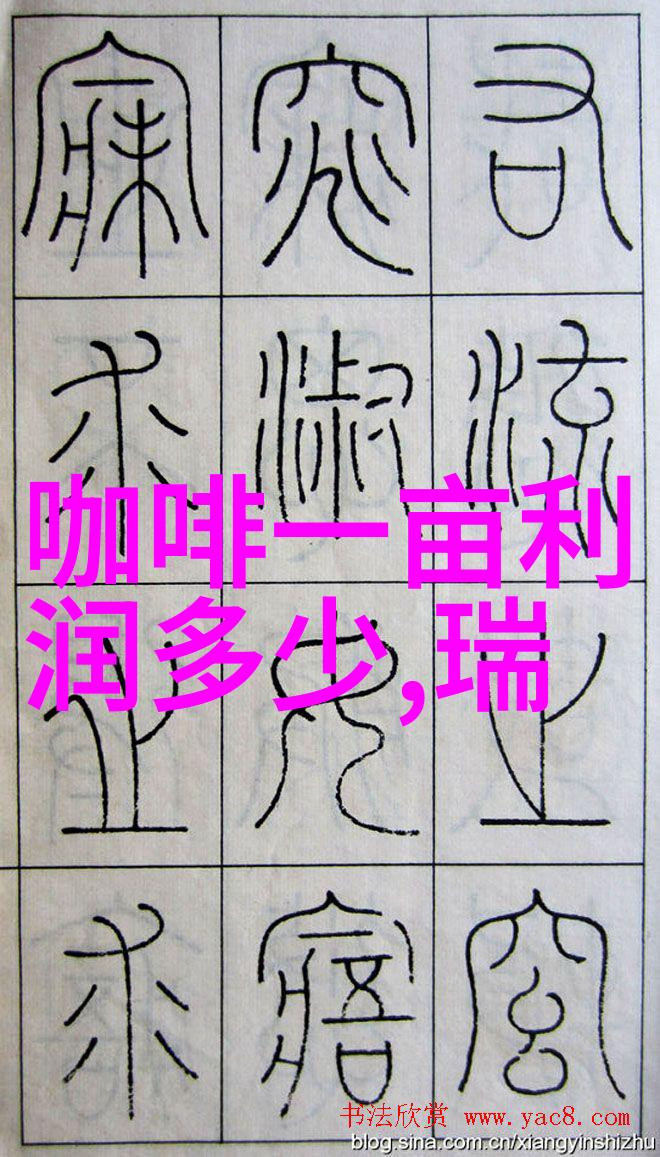 右流之窈
窕淑女寤
寐求之求
咖啡一亩利
润多少,瑞
书法欣赏 www.yac8.com
blog.sina.com.cn/xiangyinshizhu